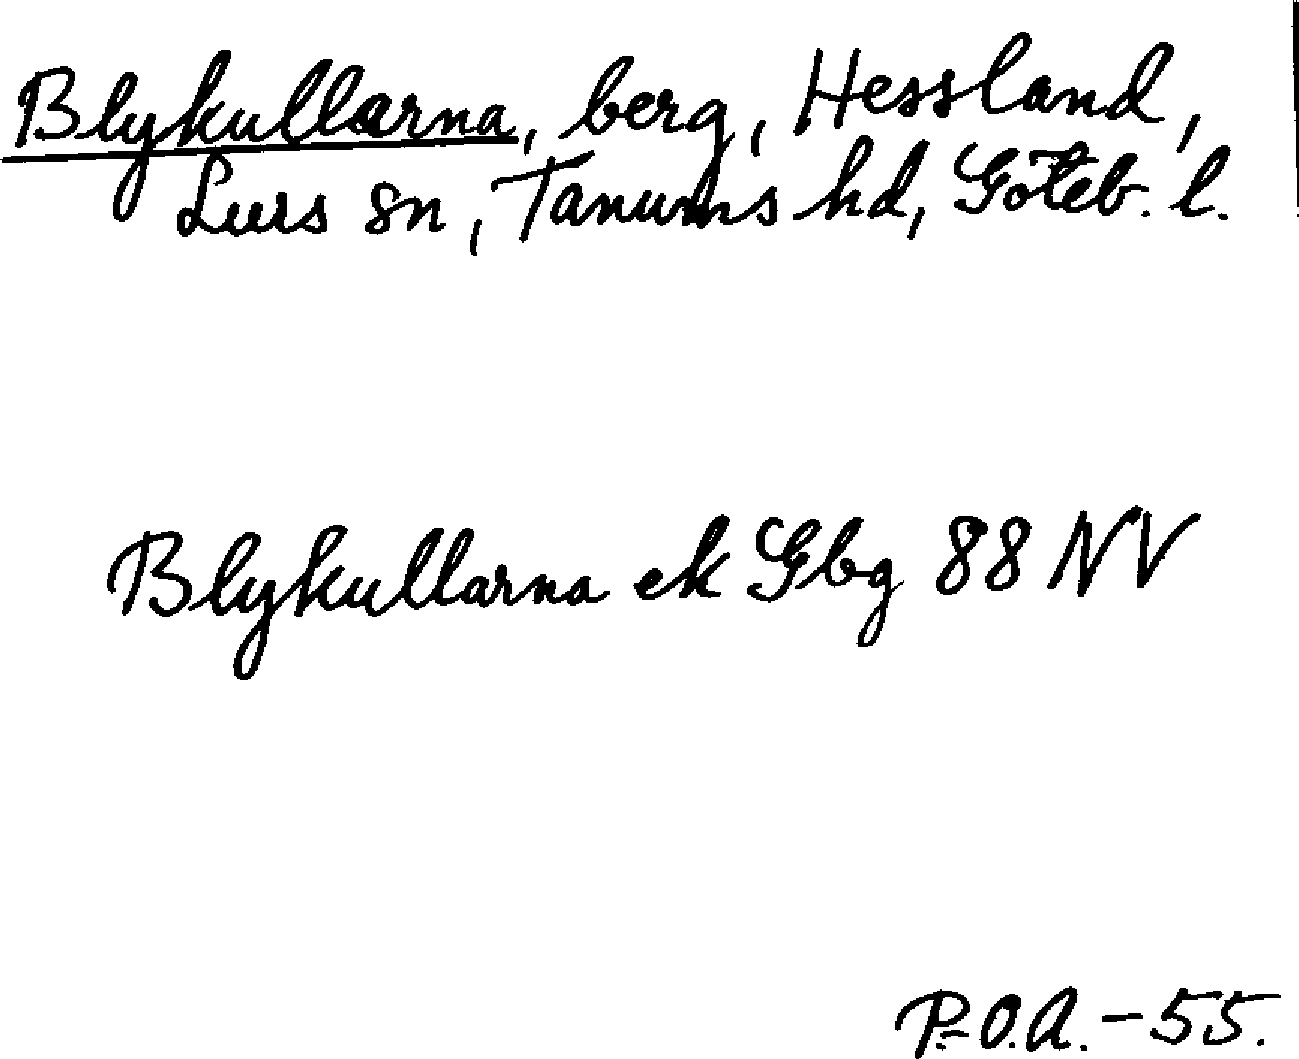 Blykullarna, berg, Hessland,
Lurs sn, Tanums hd, Göteb. l.
Blykullarna ek Gbg 88 NV
P.O.A. - 55.